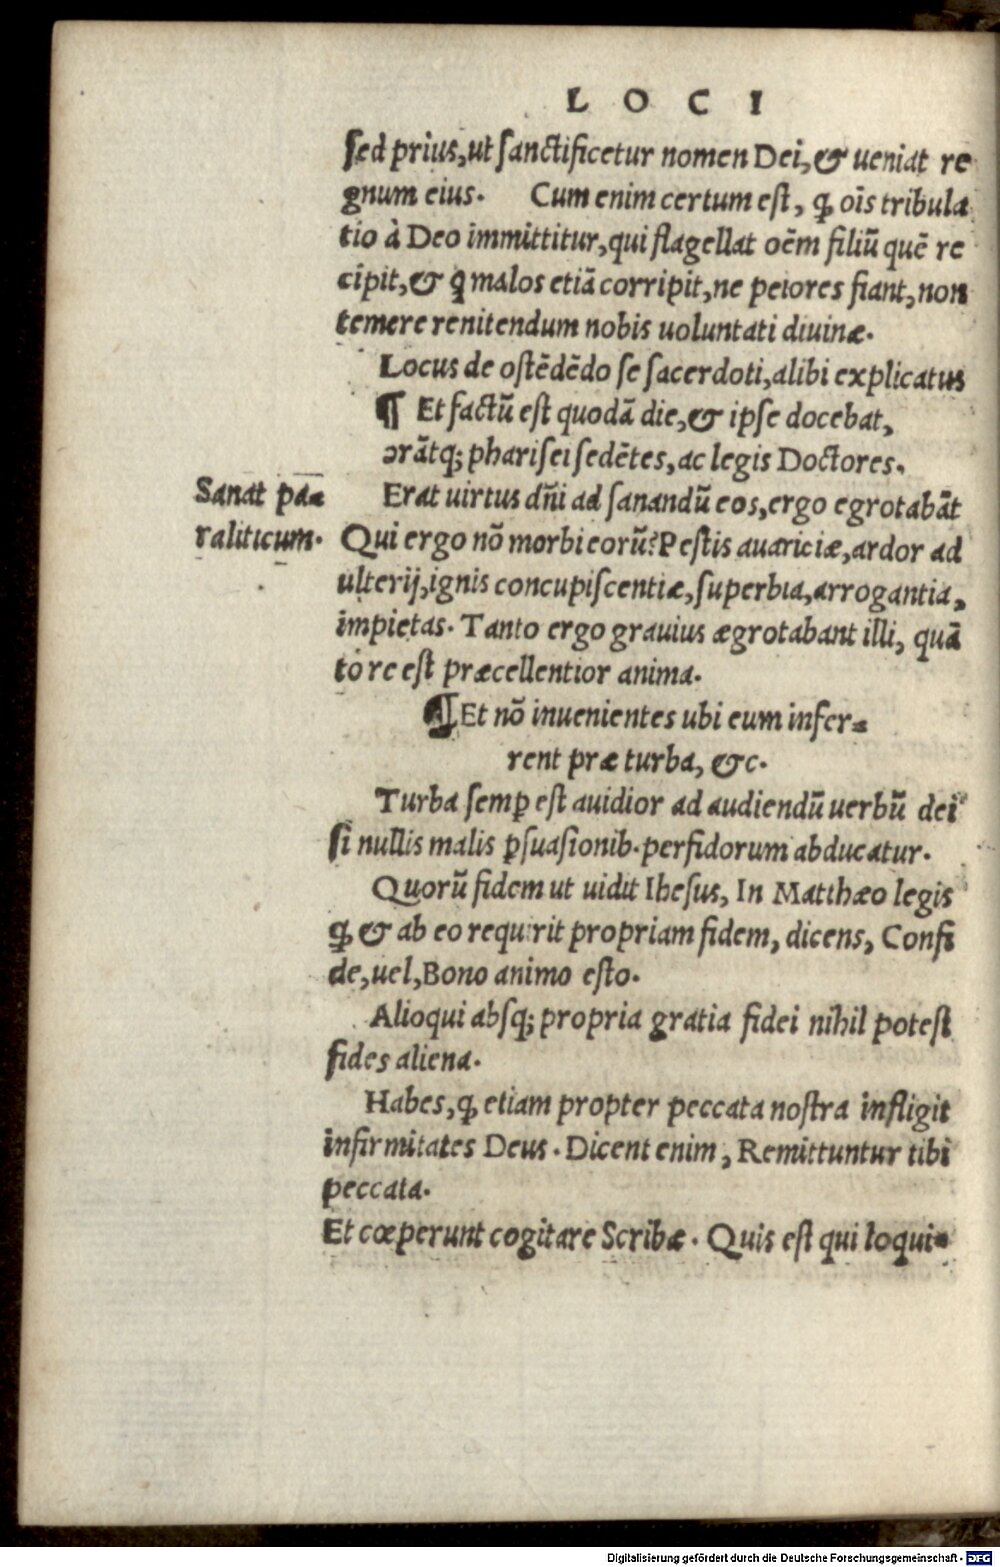 LOCI
sed prius, ut sanctificetur nomen Dei, & ueniat re
gnum eius. Cum enim certum est, ꝙ oīs tribula
tio à Deo immittitur, qui flagellat oēm filiū quē re
cipit, & ꝙ malos etiā corripit, ne peiores fiant, non
temere renitendum nobis uoluntati diuinæ.
Locus de ostēdēdo se sacerdoti, alibi explicatus
¶ Et factū est quodā die, & ipse docebat,
ɔrātq; pharisei sedētes, ac legis Doctores.
Sanat pa-
raliticum.
Erat uirtus dñi ad sanandū eos, ergo egrotabāt
Qui ergo nō morbi eorū? Pestis auariciæ, ardor ad
ulterij, ignis concupiscentiæ, superbia, arrogantia,
impietas. Tanto ergo grauius ægrotabant illi, quā
to re est præcellentior anima.
¶ Et nō inuenientes ubi eum infer-
rent præ turba, &c.
Turba semp̱ est auidior ad audiendū uerbū dei
si nullis malis p̱suasionib. perfidorum abducatur.
Quorū fidem ut uidit Ihesus, In Matthæo legis
ꝙ & ab eo requirit propriam fidem, dicens, Confi
de, uel, Bono animo esto.
Alioqui absq; propria gratia fidei nihil potest
fides aliena.
Habes, ꝙ etiam propter peccata nostra infligit
infirmitates Deus. Dicent enim, Remittuntur tibi
peccata.
Et cœperunt cogitare Scribæ. Quis est qui loqui-
Digitalisierung gefördert durch die Deutsche Forschungsgemeinschaft - DFG